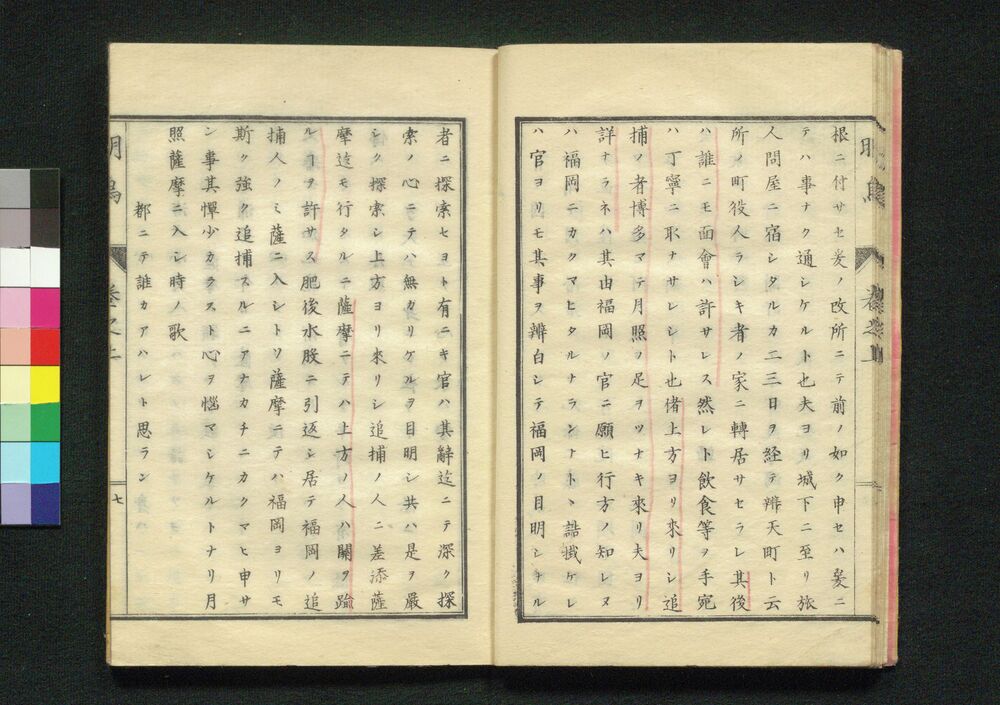 根ニ付サセ爰ノ改所ニテ前ノ如ク申セハ爰ニ
テハ事ナク通シケルト也夫ヨリ城下ニ至リ旅
人問屋ニ宿シタルカ二三日ヲ経テ辨天町ト云
所ノ町役人ラシキ者ノ家ニ轉居サセラレ其後
ハ誰ニモ面會ハ許サレス然レト飲食等ヲ手宛
ハ丁寧ニ取ナサレシト也偖上方ヨリ來リシ追
捕ノ者博多マテ月照ノ足ヲツナキ來リ夫ヨリ
詳ナラネハ其由福岡ノ官ニ願ヒ行方ノ知レヌ
ハ福岡ニカクマヒタルナラントトヽ詰懺ケレ
ハ官ヨリモ其事ヲ辨白シテ福岡ノ目明シナル
者ニ探索セヨト有ニキ官ハ其辭迄ニテ深ク探
索ノ心ニテハ無カリケルヲ目明シ共ハ是ヲ嚴
シク探索シ上方ヨリ來リシ追捕ノ人ニ差添薩
摩迄モ行タルニ薩摩ニテハ上方ノ人ハ關ヲ踰
ルヿヲ許サス肥後水股ニ引返シ居テ福岡ノ追
捕人ノミ薩ニ入シトソ薩摩ニテハ福岡ヨリモ
斯ク強ク追捕スルニアナカチニカクマヒ申サ
ン事其憚少カラスト心ヲ惱マシケルトナリ月
照薩摩ニ入シ時ノ歌
都ニテ誰カアハレト思ラン
明烏 巻之上 七